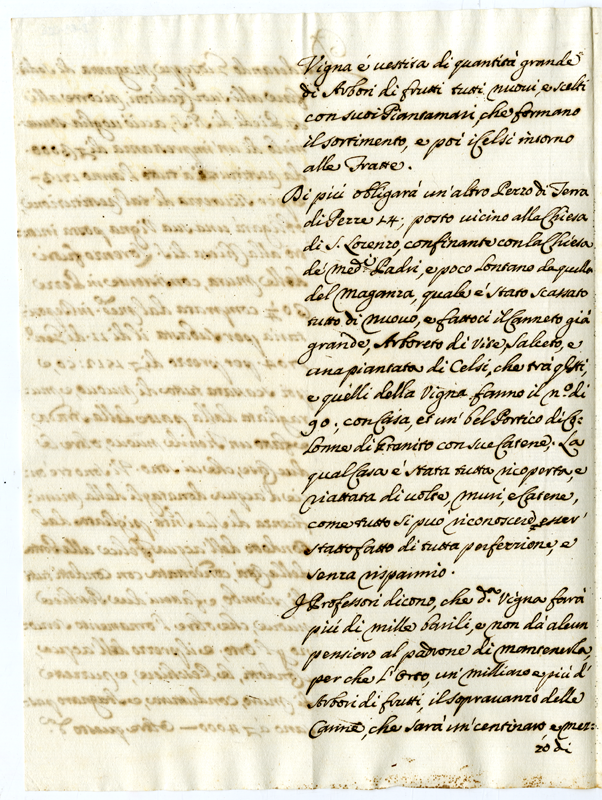 Vigna é vestita di quantità grande
di Arbori di frutti tutti nuovi, e scelti
con suoi Piantamari, che formano
il sortimento, e poi i Celsi intorno
alle Fratte.
Di più obligarà un'altro Pezzo di Terra
di Pezze 14; posto vicino alla Chiesa
di S. Lorenzo, confinante con la Chiesa
de med.i Padri, e poco lontano da quella
del Maganza, quale é stato scassato
tutto di nuovo, e fattoci il Canneto già
grande, Arboreto di Vite, Saliceto, e
una piantata di Celsi, che trà q̃sti,
e quelli della Vigna fanno il n.o di
90, con Casa, et un' bel Portico di Co-
lonne di Granito con sue Catene; La
qual Casa é stata tutta ricoperta, e
riattata di volte, muri, e Catene,
come tutto si può riconoscere, esser
statto fatto di tutta perferzione, e
senza risparmio.
I Professori dicono, che d.a Vigna farà
più di mille barili, e non dà alcun
pensiero al padrone di mantenerla
perche l'Orto, un' milliaro e più d'
Arbori di frutti, il sopravanzo delle
Canne, che sarà un' centinaro, e mez-
zo di